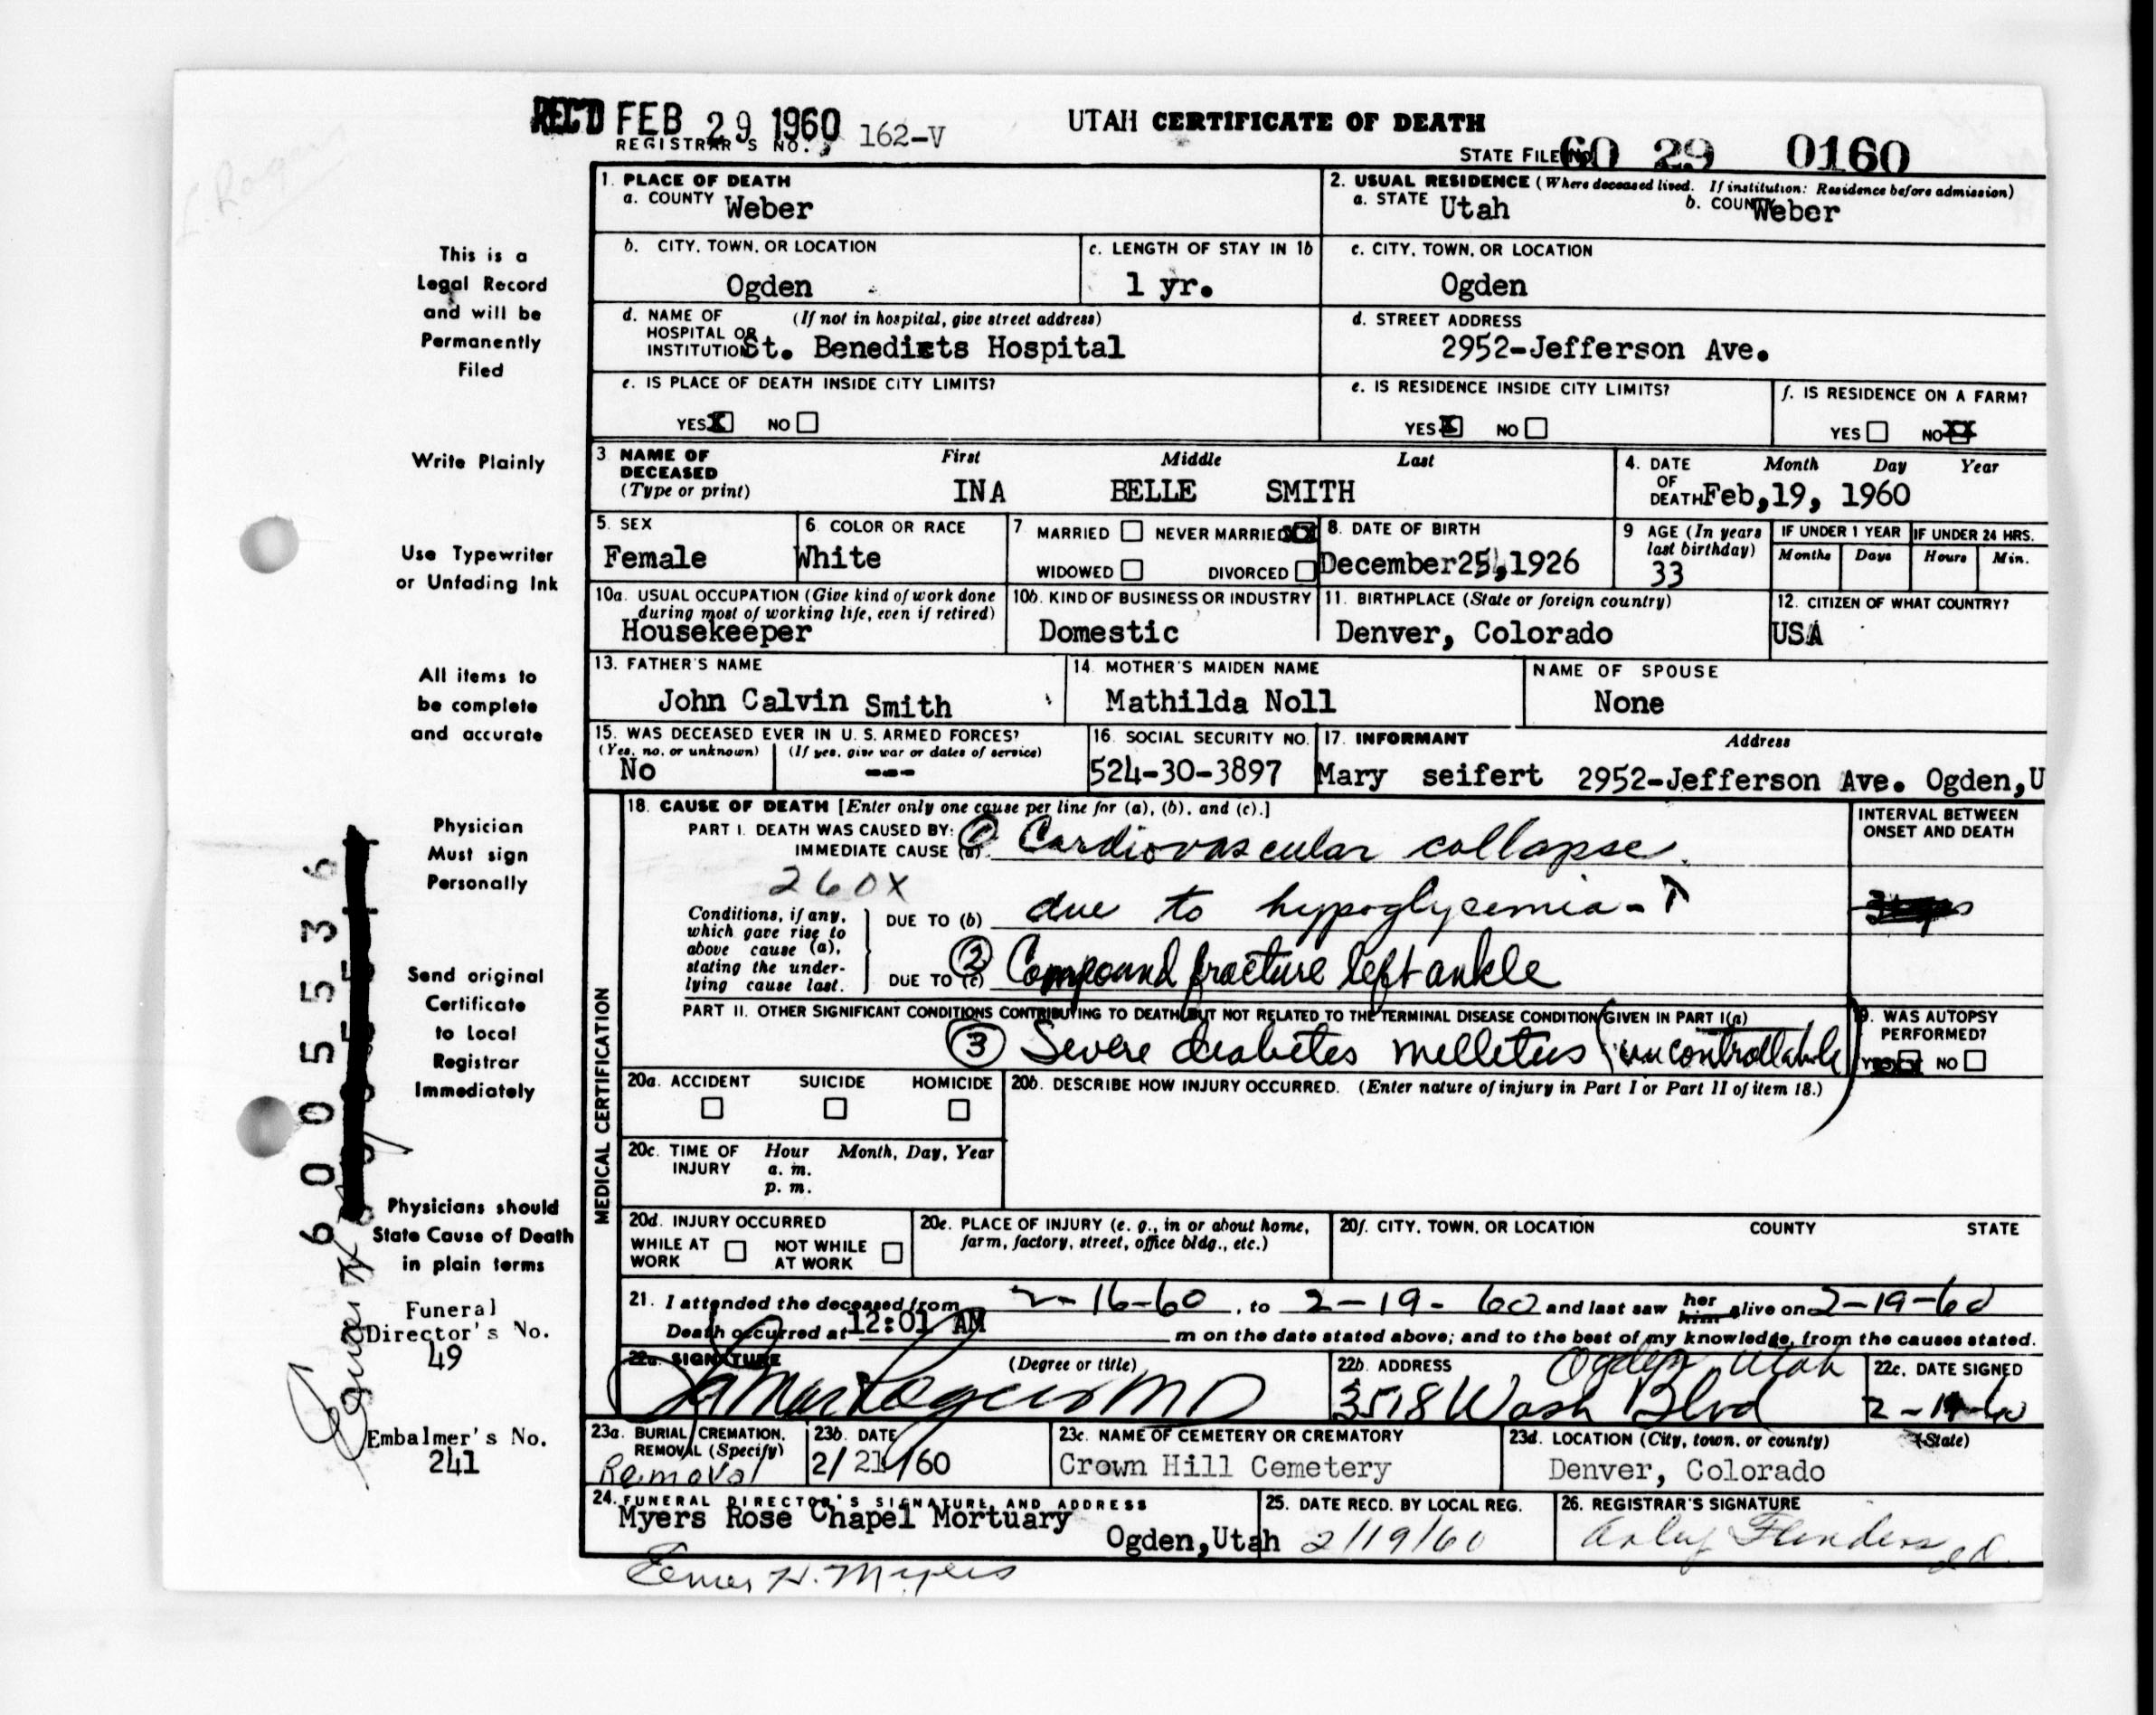 REC'D FEB 29 1960
REGISTRAR'S NO. 162-V
UTAH CERTIFICATE OF DEATH
STATE FILE NO. 60 29 0160
This is a
Legal Record
and will be
Permanently
Filed
Write Plainly
Use Typewriter
or Unfading Ink
All items to
be complete
and accurate
Physician
Must sign
Personally
Send original
Certificate
to Local
Registrar
Immediately
Physicians should
State Cause of Death
in plain terms
Funeral
Director's No.
49
Embalmer's No.
241
60055536
1. PLACE OF DEATH
a. COUNTY Weber
2. USUAL RESIDENCE (Where deceased lived. If institution: Residence before admission)
a. STATE Utah b. COUNTY Weber
b. CITY, TOWN, OR LOCATION
Ogden
c. LENGTH OF STAY IN 1b
1 yr.
c. CITY, TOWN, OR LOCATION
Ogden
d. NAME OF HOSPITAL OR INSTITUTION (If not in hospital, give street address)
St. Benedicts Hospital
d. STREET ADDRESS
2952-Jefferson Ave.
e. IS PLACE OF DEATH INSIDE CITY LIMITS?
YES X NO
e. IS RESIDENCE INSIDE CITY LIMITS?
YES X NO
f. IS RESIDENCE ON A FARM?
YES NO XX
3 NAME OF DECEASED (Type or print)
First Middle Last
INA BELLE SMITH
4. DATE OF DEATH Month Day Year
Feb,19, 1960
5. SEX
Female
6. COLOR OR RACE
White
7 MARRIED NEVER MARRIED XX
WIDOWED DIVORCED
8. DATE OF BIRTH
December25,1926
9 AGE (In years last birthday)
33
IF UNDER 1 YEAR IF UNDER 24 HRS.
Months Days Hours Min.
10a. USUAL OCCUPATION (Give kind of work done during most of working life, even if retired)
Housekeeper
10b. KIND OF BUSINESS OR INDUSTRY
Domestic
11. BIRTHPLACE (State or foreign country)
Denver, Colorado
12. CITIZEN OF WHAT COUNTRY?
USA
13. FATHER'S NAME
John Calvin Smith
14. MOTHER'S MAIDEN NAME
Mathilda Noll
NAME OF SPOUSE
None
15. WAS DECEASED EVER IN U. S. ARMED FORCES?
(Yes, no, or unknown) (If yes, give war or dates of service)
No ---
16. SOCIAL SECURITY NO.
524-30-3897
17. INFORMANT Address
Mary seifert 2952-Jefferson Ave. Ogden,U
MEDICAL CERTIFICATION
18. CAUSE OF DEATH [Enter only one cause per line for (a), (b), and (c).]
INTERVAL BETWEEN ONSET AND DEATH
PART I. DEATH WAS CAUSED BY:
IMMEDIATE CAUSE (a) ① Cardiovascular collapse
260X
Conditions, if any, which gave rise to above cause (a), stating the underlying cause last.
DUE TO (b) due to hypoglycemia - ↑
DUE TO (c) ② Compound fracture left ankle
PART II. OTHER SIGNIFICANT CONDITIONS CONTRIBUTING TO DEATH BUT NOT RELATED TO THE TERMINAL DISEASE CONDITION GIVEN IN PART I(a)
③ Severe diabetes melletus (uncontrollable)
19. WAS AUTOPSY PERFORMED?
YES NO
20a. ACCIDENT SUICIDE HOMICIDE
20b. DESCRIBE HOW INJURY OCCURRED. (Enter nature of injury in Part I or Part II of item 18.)
20c. TIME OF INJURY Hour Month, Day, Year
a. m.
p. m.
20d. INJURY OCCURRED
WHILE AT WORK NOT WHILE AT WORK
20e. PLACE OF INJURY (e. g., in or about home, farm, factory, street, office bldg., etc.)
20f. CITY, TOWN, OR LOCATION COUNTY STATE
21. I attended the deceased from 2-16-60, to 2-19-60 and last saw her him alive on 2-19-60
Death occurred at 12:01 AM m on the date stated above; and to the best of my knowledge, from the causes stated.
22a. SIGNATURE (Degree or title)
LaMar Rogers MD
22b. ADDRESS
Ogden, Utah
3518 Wash Blvd
22c. DATE SIGNED
23a. BURIAL, CREMATION, REMOVAL (Specify)
Removal
23b. DATE
2/21/60
23c. NAME OF CEMETERY OR CREMATORY
Crown Hill Cemetery
23d. LOCATION (City, town, or county) (State)
Denver, Colorado
24. FUNERAL DIRECTOR'S SIGNATURE AND ADDRESS
Myers Rose Chapel Mortuary
Ogden,Utah
25. DATE RECD. BY LOCAL REG.
2/19/60
26. REGISTRAR'S SIGNATURE
Elmer H. Myers